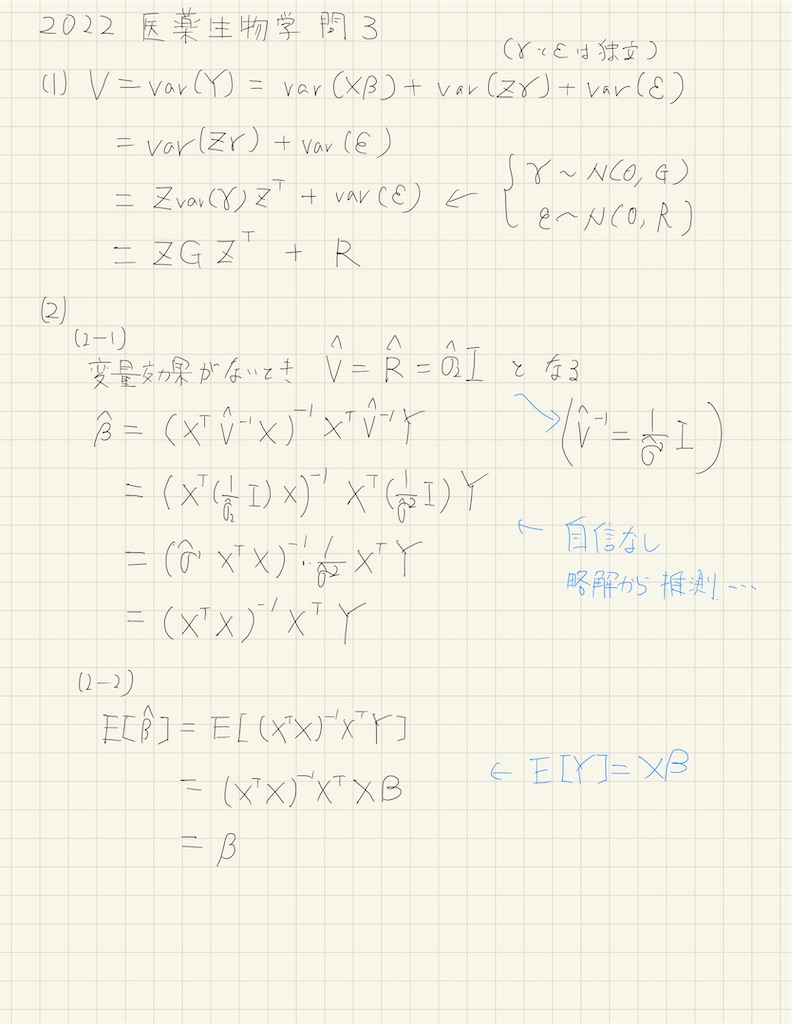 2022 医薬生物学 問3
(γとεは独立)
(1) V = var(Y) = var(Xβ) + var(Zγ) + var(ε)
= var(Zγ) + var(ε)
= Zvar(γ)Z^T + var(ε) ← { γ ~ N(0, G)
ε ~ N(0, R)
= ZGZ^T + R
(2)
(2-1)
変量効果がないとき V̂ = R̂ = σ̂2 I となる
β̂ = (X^T V̂^-1 X)^-1 X^T V̂^-1 Y (V̂^-1 = 1/σ̂^2 I)
= (X^T (1/σ̂2 I) X)^-1 X^T (1/σ̂^2 I) Y
← 自信なし
= (σ̂^1 X^T X)^-1 · 1/σ̂^2 X^T Y
略解から推測...
= (X^T X)^-1 X^T Y
(2-2)
E[β̂] = E[(X^T X)^-1 X^T Y]
← E[Y] = Xβ
= (X^T X)^-1 X^T Xβ
= β